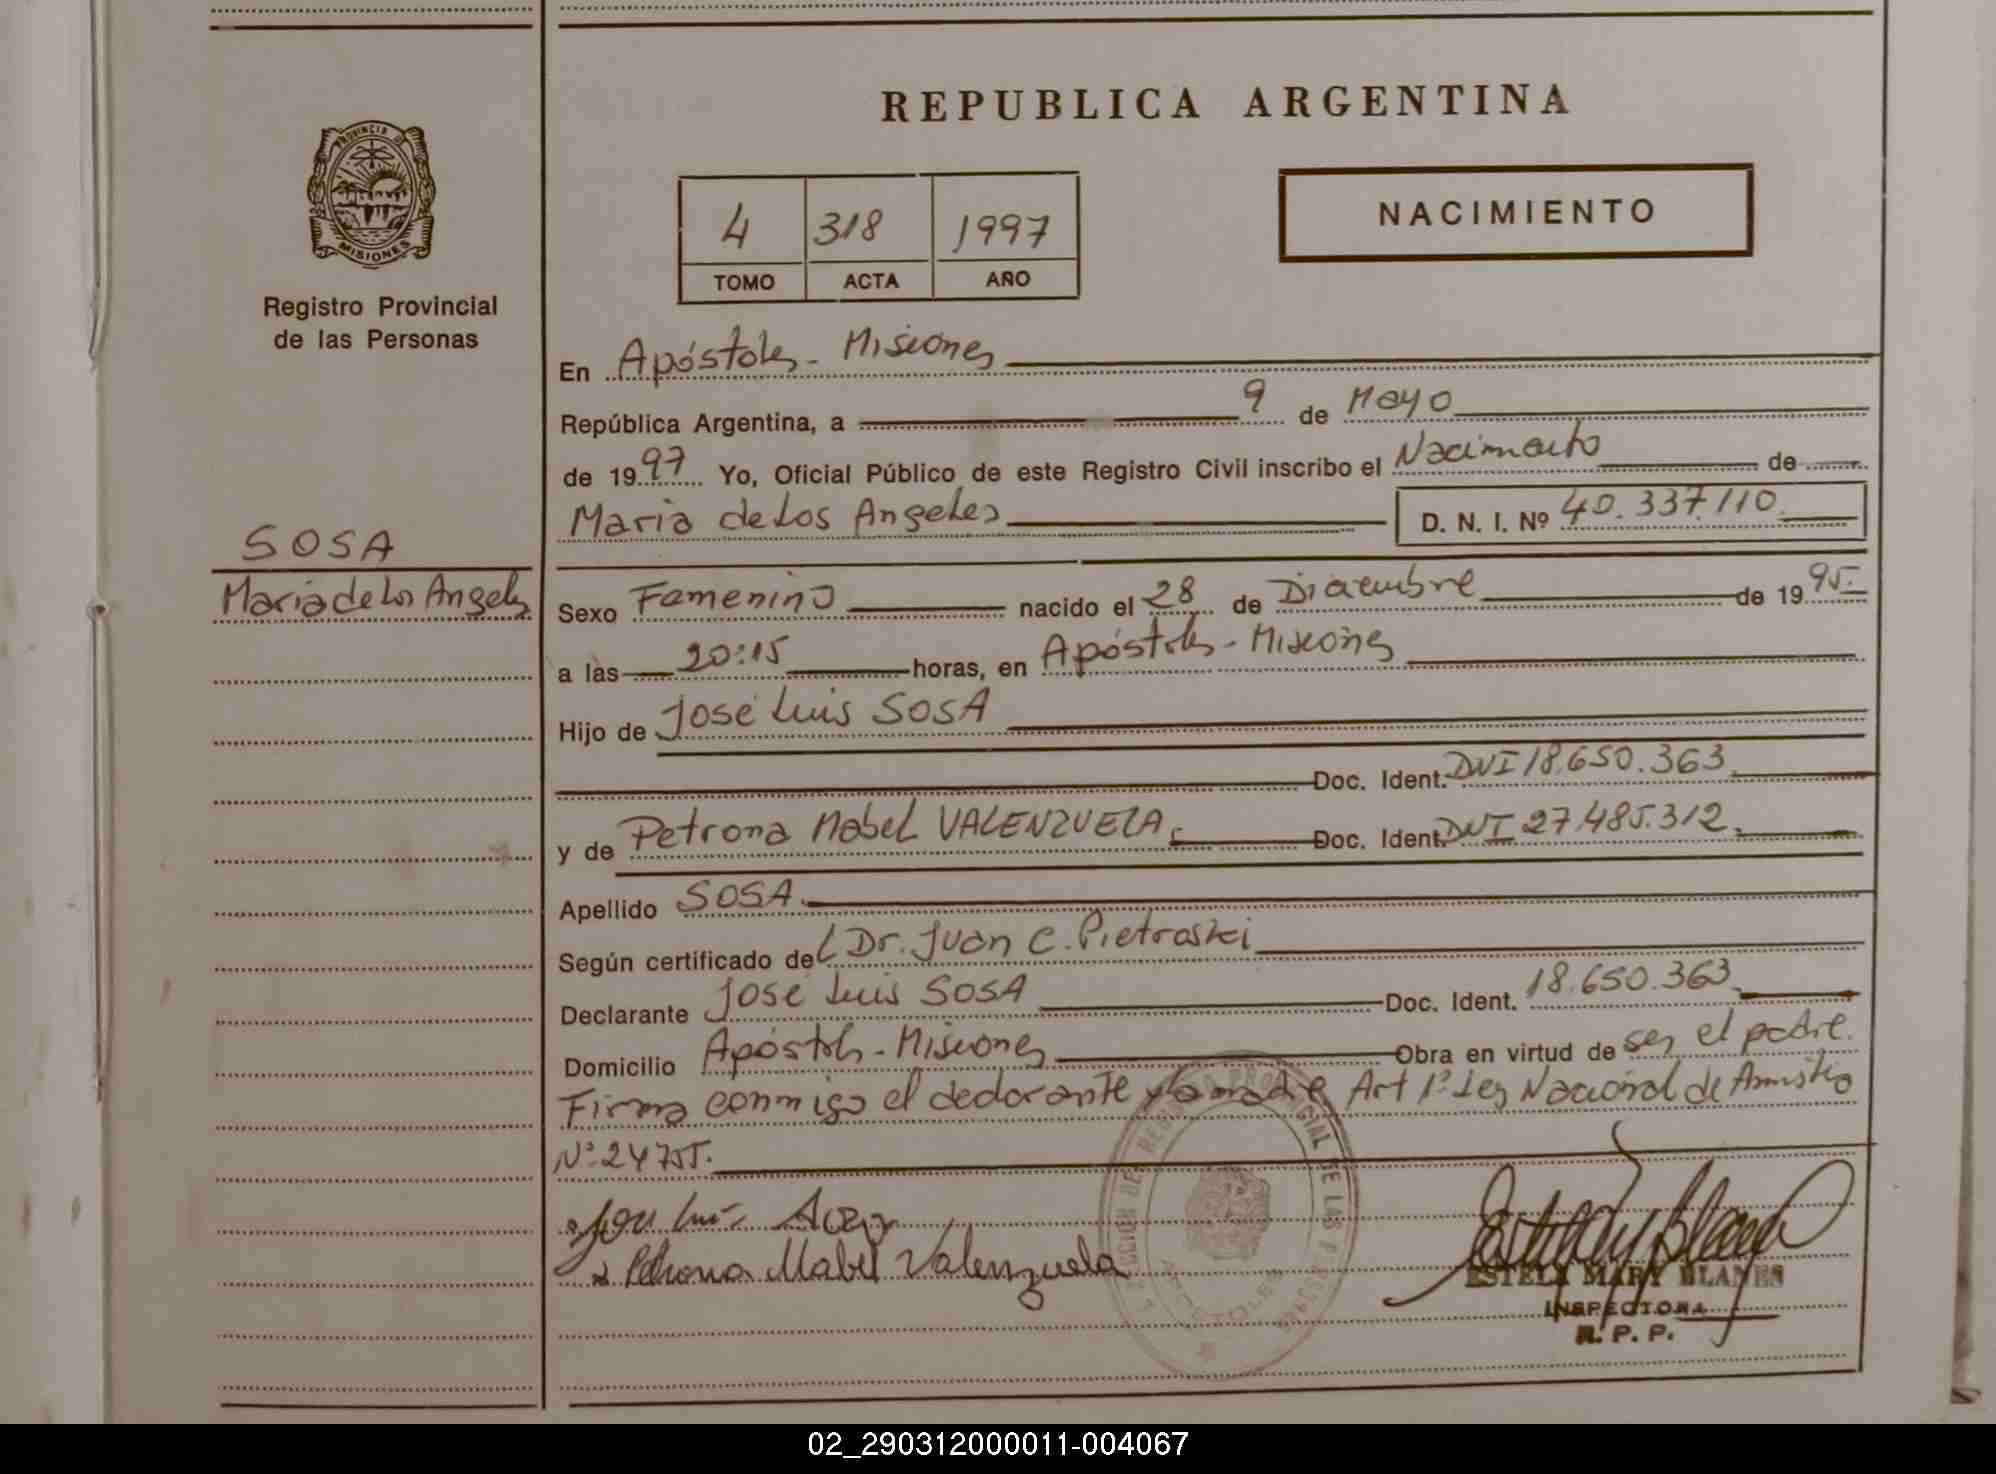 REPUBLICA ARGENTINA
PROVINCIA DE
MISIONES
Registro Provincial
de las Personas
4 318 1997
TOMO ACTA AÑO
NACIMIENTO
En Apóstoles - Misiones
República Argentina, a 9 de Mayo
de 1997 Yo, Oficial Público de este Registro Civil inscribo el Nacimiento de
Maria de Los Angeles D. N. I. Nº 40.337.110
SOSA
Maria de Los Angeles
Sexo Femenino nacido el 28 de Diciembre de 1995.
a las 20:15 horas, en Apóstoles - Misiones
Hijo de José Luis SOSA
Doc. Ident. DNI 18.650.363
y de Petrona Mabel VALENZUELA. Doc. Ident. DNI 27.485.312.
Apellido SOSA.
Según certificado del Dr. Juan C. Pietraski
Declarante José Luis SOSA Doc. Ident. 18.650.363.
Domicilio Apóstoles - Misiones Obra en virtud de ser el padre.
Firma conmigo el declarante y la madre Art 1º Ley Nacional de Amnistia
Nº 24755.
Petrona Mabel Valenzuela
ESTELA MARY BLANES
INSPECTORA
R. P. P.
02_290312000011-004067